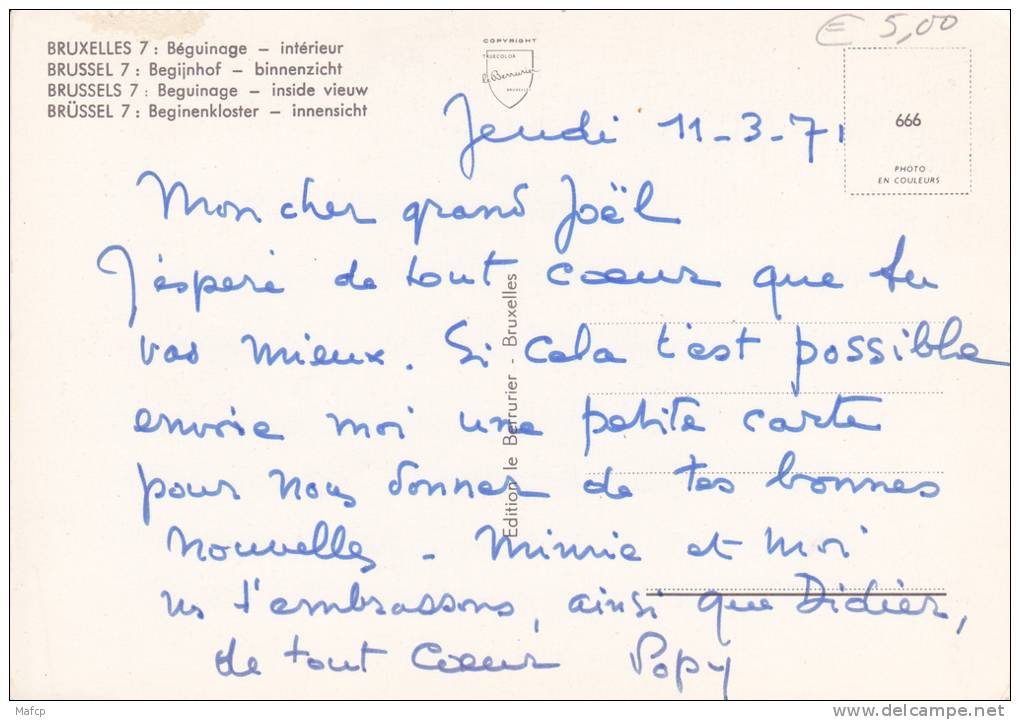 € 5,00
BRUXELLES 7 : Béguinage – intérieur
BRUSSEL 7 : Begijnhof – binnenzicht
BRUSSELS 7 : Beguinage – inside vieuw
BRÜSSEL 7 : Beginenkloster – innensicht
COPYRIGHT
TRUECOLOR
le Berrurier
BRUXELLES
666
PHOTO
EN COULEURS
Jeudi 11-3-71
Mon cher grand Joël
J'éspère de tout coeur que tu
vas mieux. Si cela t'est possible
envoie moi une petite carte
pour nous donner de tes bonnes
nouvelles - Mimie et moi
ns t'embrassons, ainsi que Didier,
de tout coeur Popy
Edition le Berrurier - Bruxelles
Mafcp
www.delcampe.net